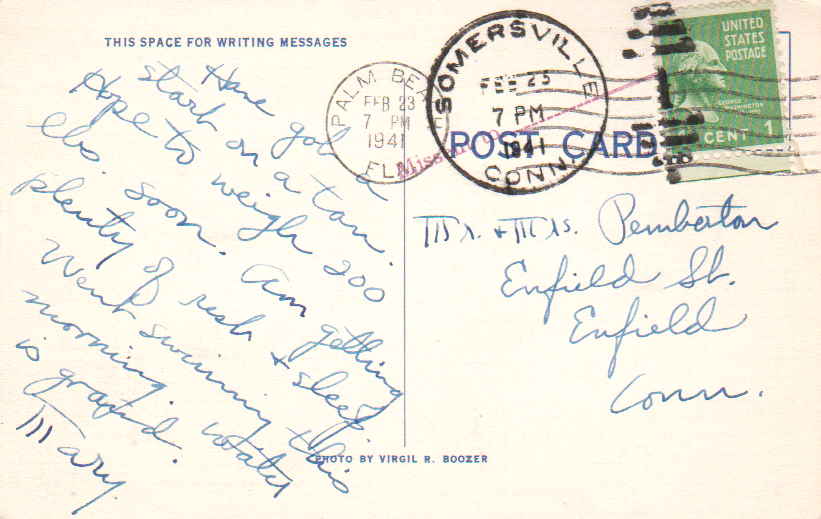 THIS SPACE FOR WRITING MESSAGES
Have got a
start on a tan.
Hope to weigh 200
lbs. soon. Am getting
plenty of rest & sleep.
Went swimming this
morning. water
is grand.
Mary.
PALM BEACH
FEB 23
7 PM
1941
FLA
SOMERSVILLE
FEB 25
7 PM
1941
CONN.
Missent to
UNITED
STATES
POSTAGE
GEORGE
WASHINGTON
CENT 1
POST CARD
Mr. & Mrs. Pemberton
Enfield St.
Enfield
Conn.
PHOTO BY VIRGIL R. BOOZER